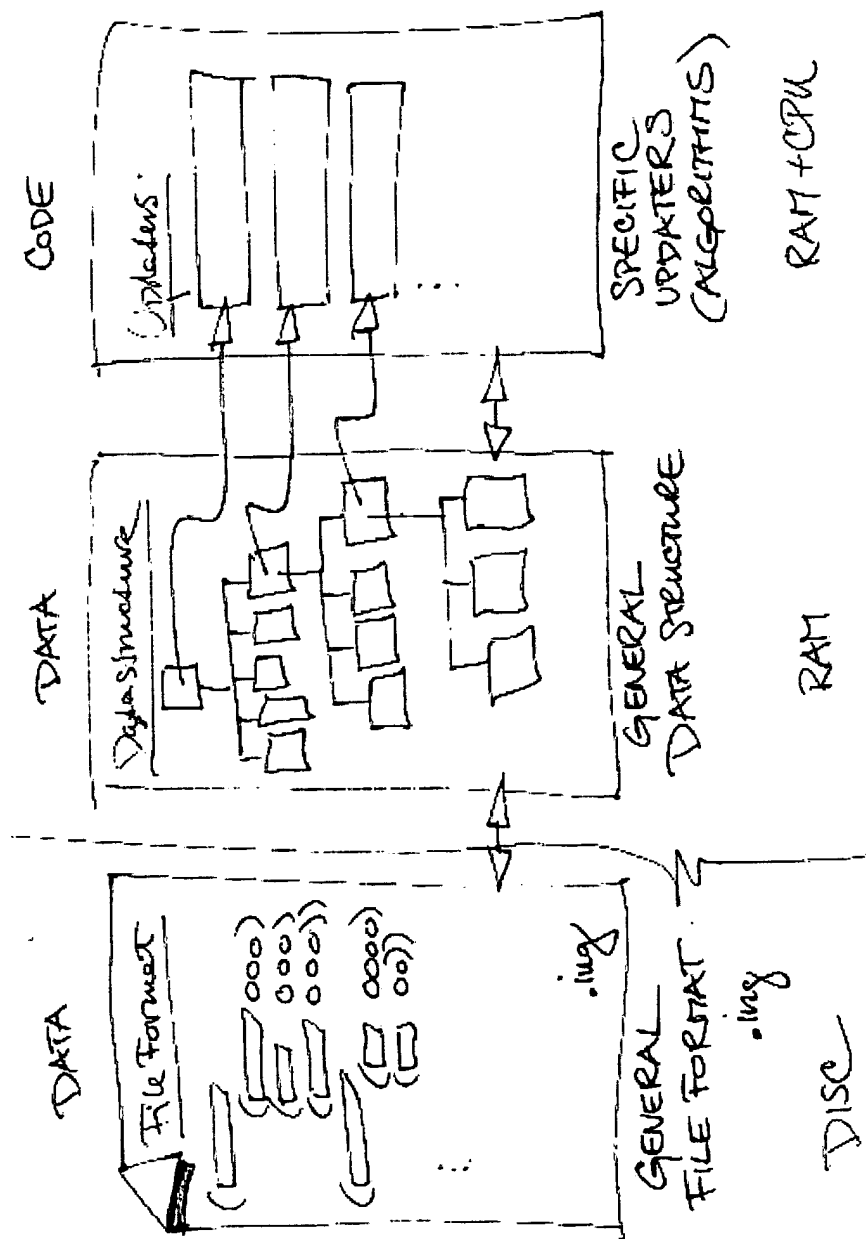 DATA
File Format
( ( ooo)
( ooo)
( ooo))
( ( oooo)
( oo))
...
.ing
GENERAL
FILE FORMAT
.ing
DISC
DATA
Data Structure
GENERAL
DATA STRUCTURE
RAM
CODE
Updaters
...
SPECIFIC
UPDATERS
(ALGORITHMS)
RAM + CPU